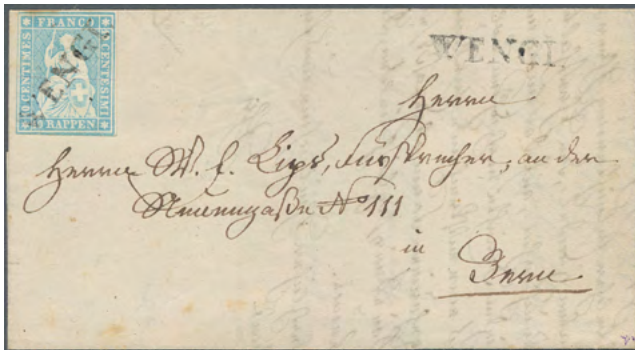 FRANCO
10 CENTIMES
CENTESIMI
RAPPEN
WENGI
WENGI
Herrn
Herrn W. f. Lips, Fürsprecher, an der
Neuengaße No 111
in
Bern